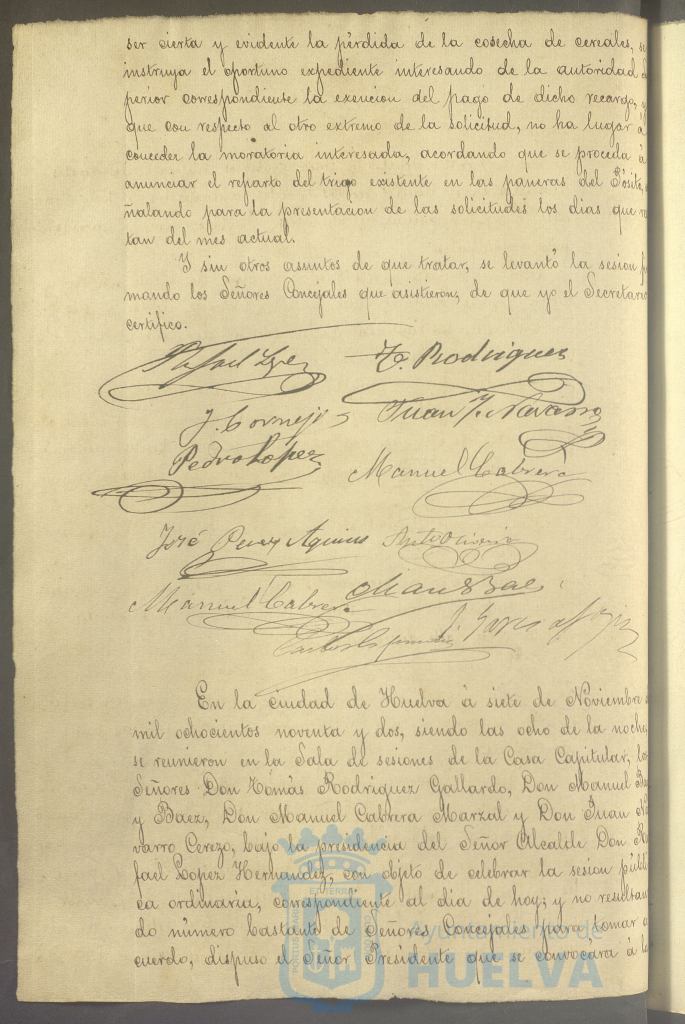 ser cierta y evidente la pérdida de la cosecha de cereales, se
instruya el oportuno expediente interesando de la autoridad
perior correspondiente la exencion del pago de dicho recargo, y
que con respecto al otro extremo de la solicitud, no ha lugar á
conceder la moratoria interesada, acordando que se proceda á
anunciar el reparto del trigo existente en las paneras del Pósito,
ñalando para la presentacion de las solicitudes los dias que
tan del mes actual.
Y sin otros asuntos de que tratar, se levantó la sesion
mando los Señores Concejales que asistieron; de que yo el Secretario
certifico.
Rafael Lopez T. Rodriguez
J. Cornejo Juan J. Navarro
Pedro Lopez Manuel Cabrera
José Perez
Manuel Cabrera
En la ciudad de Huelva á siete de Noviembre
mil ochocientos noventa y dos, siendo las ocho de la noche,
se reunieron en la Sala de sesiones de la Casa Capitular, los
Señores Don Tomás Rodriguez Gallardo, Don Manuel
y Baez, Don Manuel Cabrera Marzal y Don Juan Na
varro Cerezo, bajo la presidencia del Señor Alcalde Don Ra
fael Lopez Hernandez, con objeto de celebrar la sesion públi
ca ordinaria, correspondiente al dia de hoy; y no resultan
do número bastante de Señores Concejales para tomar a
cuerdo, dispuso el Señor Presidente que se convocara á la
Ayuntamiento de
HUELVA